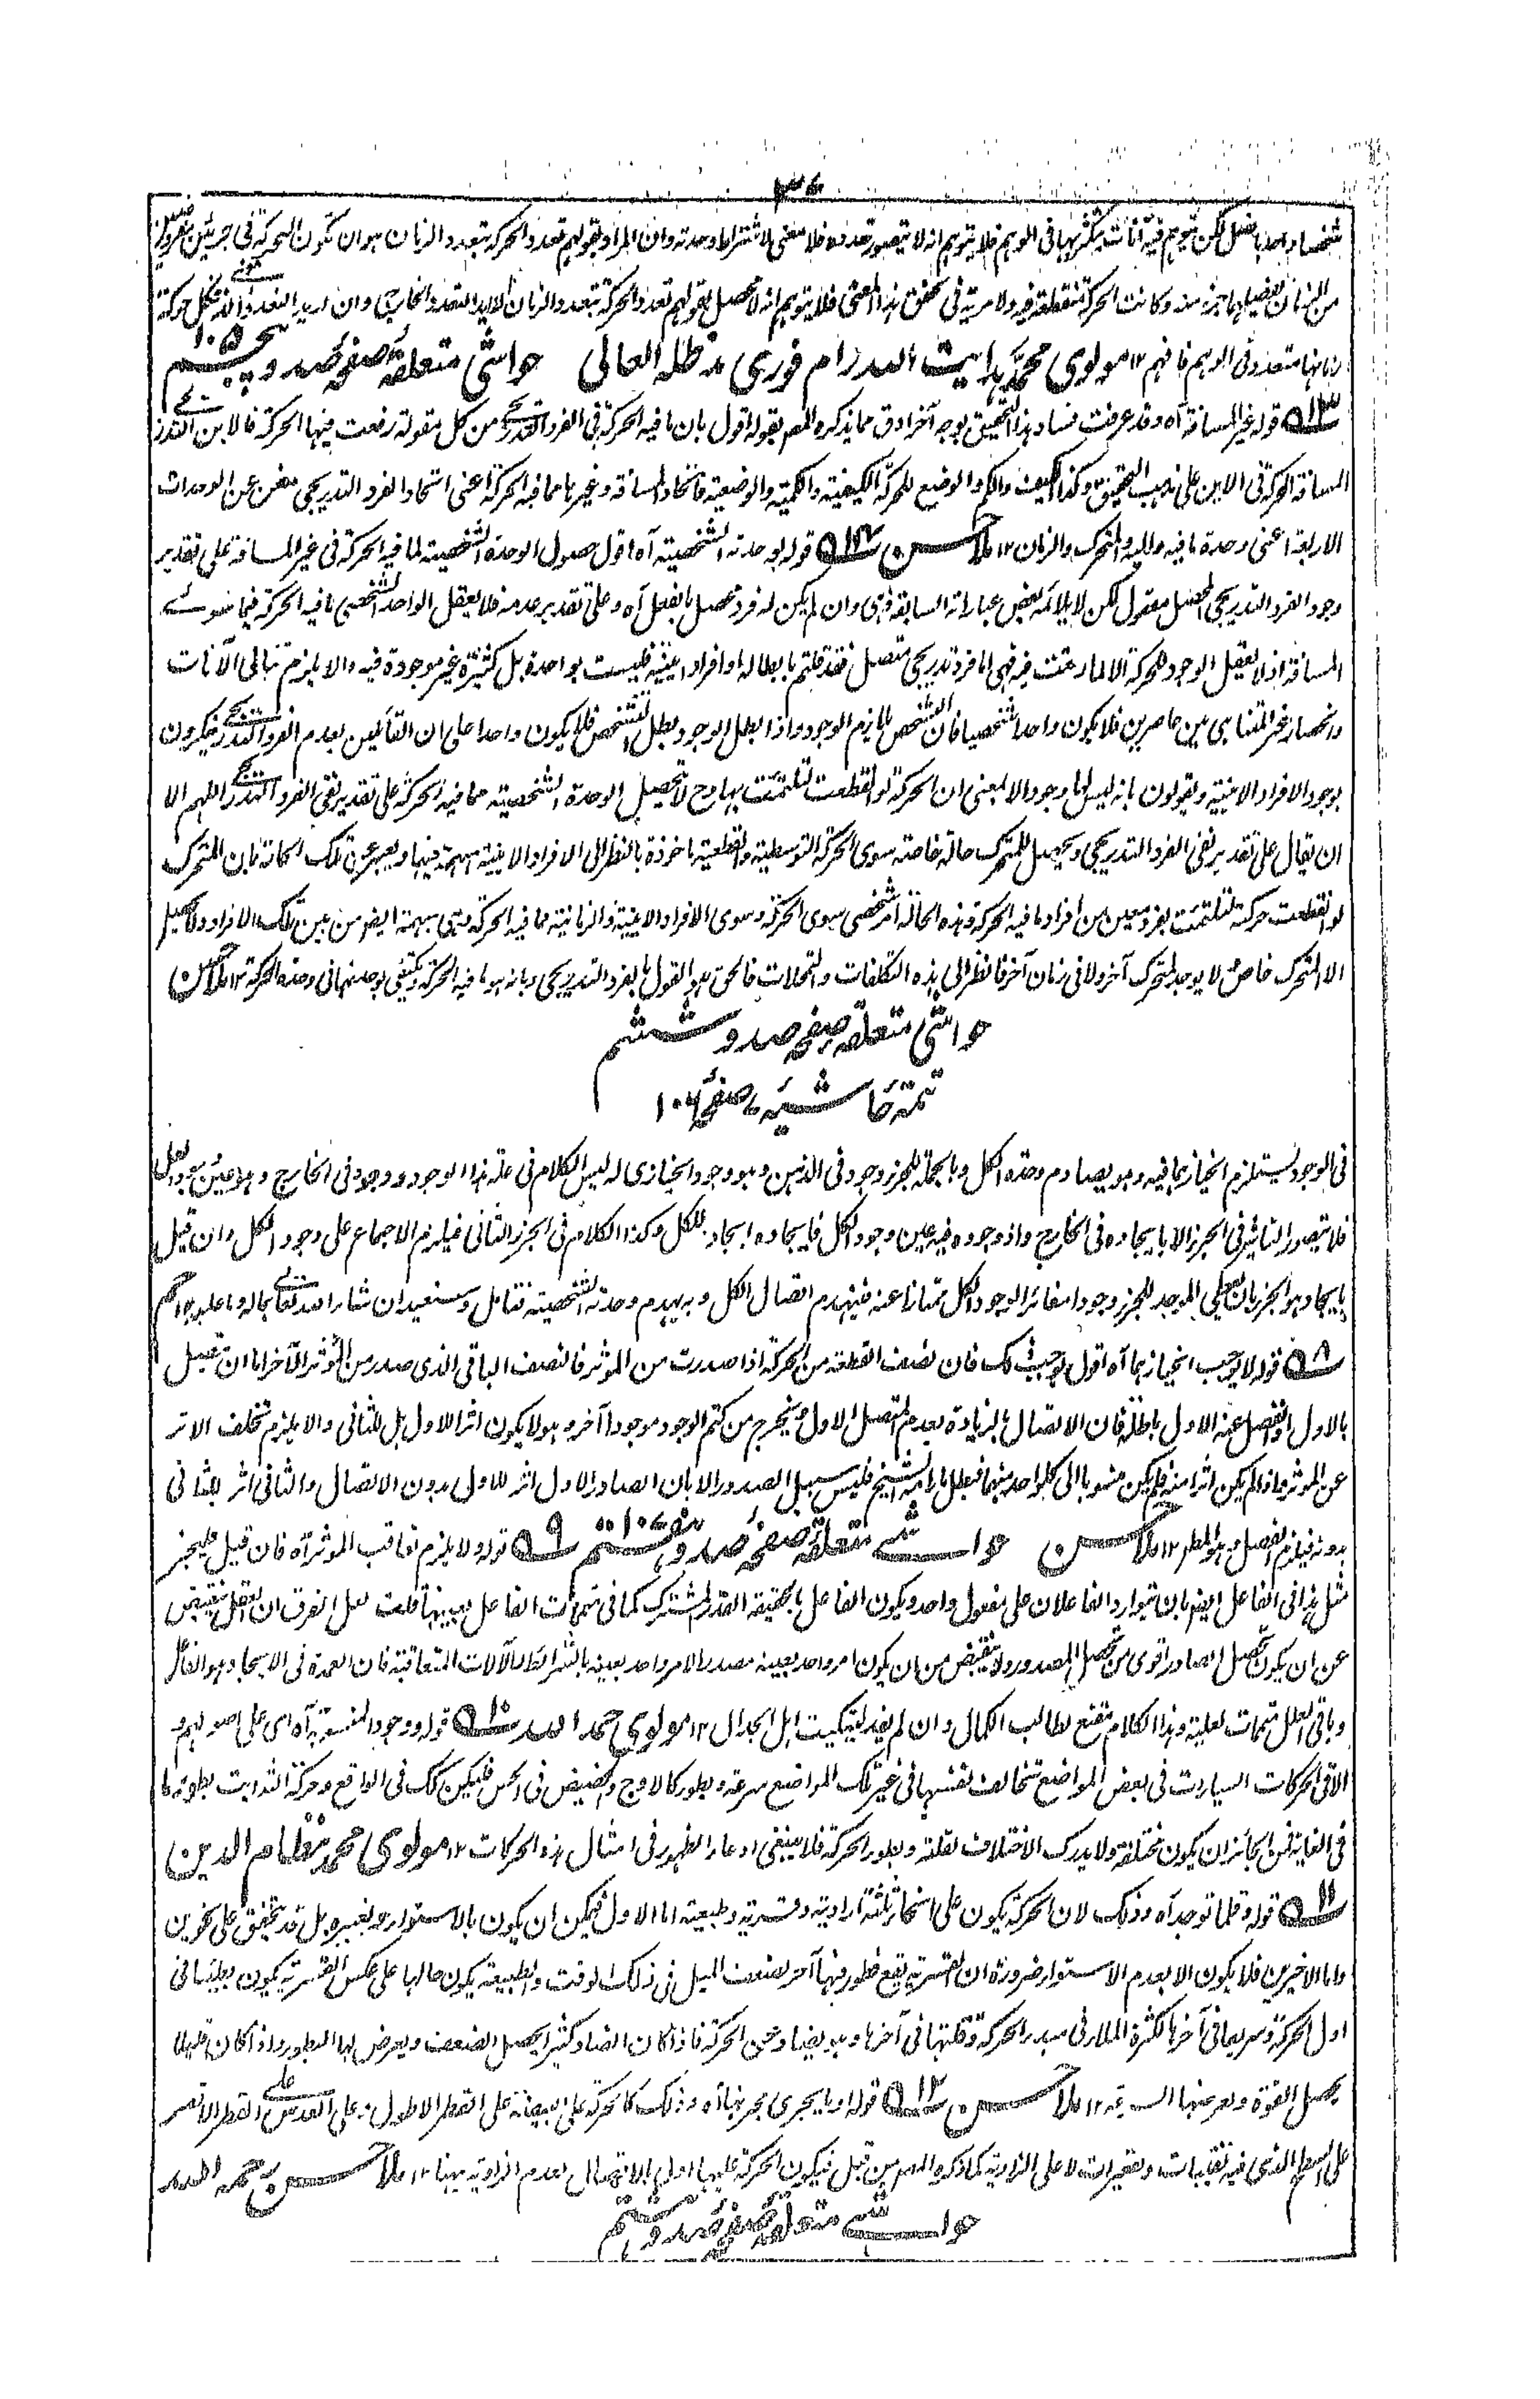 ٣٦
شخصا واحدا بالفعل لكن يتوهم فيه آنات يتكثر بها فى الوهم فلا يتوهم انه لا يتصور تعدده فلا معنى لاشتراط وحدته وان المراد بقولهم تعدد الحركة بتعدد الزمان هو ان تكون الحركة فى جزئين
من الزمان وكانت الحركة منقطعة فيه ولا مرية فى تحقق هذا المعنى فلا يتوهم انه لا محصل لقولهم تعدد الحركة بتعدد الزمان لانه ان اريد التعدد الخارجى وان اريد التعدد فكل حركة
زمانها متعدد فى الوهم فافهم ١٢ مولوى محمد هدايت الله رام فورى مد ظله العالى حواشى متعلقه صفحه صد و پنجم ١٠٥
١٣ قوله غير المسافة آه وقد عرفت فساد هذا التحقيق بوجه آخر ادق مما يذكره المص بقوله اقول بان ما فيه الحركة فى الفرد التدريجى من كل مقولة وقعت فيها الحركة فالاين التدريجى
المسافة الحركة فى الاين على مذهب التحقيق وكذا الكيف والكم والوضع للحركة الكيفية والكمية والوضعية فاتحاد المسافة وغيرها مما فيه الحركة اعنى اتحاد الفرد التدريجى مغن عن الوحدات
الاربعة اعنى وحدة ما فيه وما اليه والمتحرك والزمان ١٢ ملا حسن ١٤ قوله بوحدته الشخصية آه اقول حصول الوحدة الشخصية لما فيه الحركة فى غير المسافة على تقدير
وجود الفرد التدريجى المتصل معقول لكن لا يلائمه بعض عباراته السابقة وهى وان لم يكن له فرد متصل بالفعل آه وعلى تقدير عدمه فلا يعقل الواحد الشخصى ما فيه الحركة فيما سوى
المسافة اذ لا يعقل الوجود للحركة الا لما وقعت فيه فهى اما فرد تدريجى متصل فقد قلتم بابطاله او افراد اينية فليست بواحدة بل كثيرة غير موجودة فيه والا يلزم تتالى الآنات
وانحصار غير المتناهى بين حاصرين فلا يكون واحدا شخصيا فان التشخص يلازم الوجود واذا بطل الوجود بطل التشخص فلا يكون واحدا على ان القائلين بعدم الفرد التدريجى ينكرون
بوجود الافراد الاينية ويقولون بانه ليس لها وجود الا بمعنى ان الحركة لو انقطعت لتلتئمت بها وح لا تحصيل الوحدة الشخصية مما فيه الحركة على تقدير نفى الفرد التدريجى اللهم الا
ان يقال على تقدير نفى الفرد التدريجى ويحصل للمتحرك حالة خاصة سوى الحركة التوسطية والقطعية ماخوذة بالنظر الى الافراد الاينية مبهمة فيها ويعبر عن تلك الحالة بان المتحرك
لو انقطعت حركته لتلتئمت بفرد معين من افراد ما فيه الحركة وهذه الحالة امر شخصى سوى الحركة وسوى الافراد الاينية والزمانية مما فيه الحركة وهى مبهمة ايضا من بين تلك الافراد ولا تحصل
الا لمتحرك خاص لا يوجد لمتحرك آخر ولا فى زمان آخر فانظر الى هذه التكلفات والتمحلات فالحق هو القول بالفرد التدريجى وبانه هو ما فيه الحركة ويكتفى بوحدتها فى وحدة الحركة ١٢ ملا حسن
حواشى متعلقه صفحه صد و ششم
تتمه حاشيه ٧ صفحه ١٠٦
فى الوجود يستلزم انحيازها فيه وهو يصادم وحدة الكل وبالجملة للجزء وجود فى الذهن وهو وجود انحيازى له ليس الكلام فى علة هذا الوجود ووجود فى الخارج وهو عين وجود الكل
فلا يتصور التاثير فى الجزء الا بايجاده فى الخارج واذ وجوده فيه عين وجود الكل فايجاده ايجاد للكل وكذا الكلام فى الجزء الثانى فيلزم الاجماع على وجود الكل وان قيل
بايجاد هو الجزء بان يعطى الموجد للجزء وجودا مغائرا لوجود الكل ممتازا عنه فينهدم اتصال الكل وبه ينهدم وحدته الشخصية فتامل وستعيد ان شاء الله تعالى بماله وما عليه ١٢
٨ قوله لا يوجب انحيازهما آه اقول يوجب ذلك فان نصف القطعة من الحركة اذا صدرت من المؤثر فالنصف الباقى الذى صدر من المؤثر الآخر اما ان تصل
بالاول او انفصل عنه الاول باطلة فان الاتصال بالزيادة يعدم المتصل الاول ويخرج من كتم الوجود موجودا آخر وهو لا يكون اثر الاول بل للثانى والا يلزم تخلف الاثر
عن المؤثر واذا لم يكن اثرا منه فلم يكن منسوبا الى كل واحد منهما فبطل ما رامه الشيخ فليس سبيل الصدور الا بان الصادر الاول اثر للاول بدون الاتصال والثانى اثر للثانى
بدونه فيلزم الفصل وهو المط ١٢ ملا حسن حواشى متعلقه صفحه صد و هفتم ١٠٧ ٩ قوله ولا يلزم تعاقب المؤثر آه فان قيل فليجز
مثل هذا فى الفاعل ايضا بان يتوارد الفاعلان على مفعول واحد ويكون الفاعل بالحقيقة القدر المشترك كما فى متممات الفاعل بعينها قلت لعل الفرق ان العقل ينقبض
عن ان يكون تحصل الصادر اقوى من تحصل المصدر ولا ينقبض من ان يكون امر واحد بعينه مصدرا لامر واحد بعينه بالشرائط والآلات المتعاقبة فان العمدة فى الايجاد هو الفاعل
وباقى العلل متممات لعليته وهذا الكلام مقنع لطالب الكمال وان لم يفد لتبكيت اهل الجدال ١٢ مولوى حمد الله ١٠ قوله ووجود المفسرية آه اى على اصولهم و
الافى الحركات السيارات فى بعض المواضع تخالف نفسها فى غير تلك المواضع سرعة وبطوء كالاوج والحضيض فى الحس فليكن كك فى الواقع وحركة الثوابت بطوئه لما
فى الغاية فمن الجائز ان يكون مختلفة ولا يدرك الاختلاف لقلته وبطوء الحركة فلا ينبغى ادعاء الظهور فى امثال هذه الحركات ١٢ مولوى محمد نظام الدين
١١ قوله وقلما توجد آه وذلك لان الحركة يكون على انحاء ثلثة ارادية وقسرية وطبيعية اما الاول فيمكن ان يكون بالاستواء وبغيره بل قد يتحقق على نحوين
واما الاخيرين فلا يكون الا بعدم الاستواء ضرورة ان القسرية يقع فطور فيها آخر لضعف الميل فى ذلك الوقت والطبيعية يكون حالها على عكس القسرية يكون بطيئا فى
اول الحركة وسريعا فى آخرها لكثرة الملاء فى مبدء الحركة وقلتها فى آخرها وهو يضاد عن الحركة فاذا كان المضاد كثيرا يحصل الضعف ويعرض لها البطوء واذا كان قليلا
يحصل القوة ويعرضها السرعة ١٢ ملا حسن ١٢ قوله او ما يجرى مجريها آه وذلك كالحركة على البيضة على القطر الاطول وعلى العدس على القطر الاقصر
على السطح الذى فيه تقبيبات وتقعيرات لا على الزاوية كما ذكره المص من قبل فيكون الحركة عليها اولى بالاتصال لعدم الزاوية ههنا ١٢ ملا حسن رحمه الله
حواشى متعلقه صفحه صد و هشتم